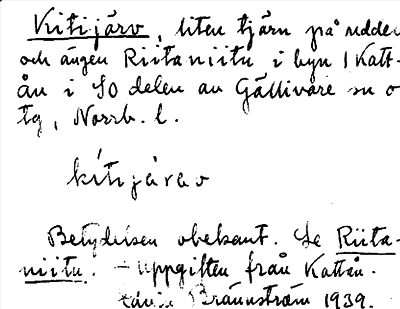 Kitijärv, liten tjärn på udden
och ängen Riitaniitu i byn Katt-
ån i SO delen av Gällivare sn o
tg, Norrb. l.
kitijärvv
Betydelsen obekant. Se Riita-
niitu. - Uppgiften från Kattån.
Brännström 1939.